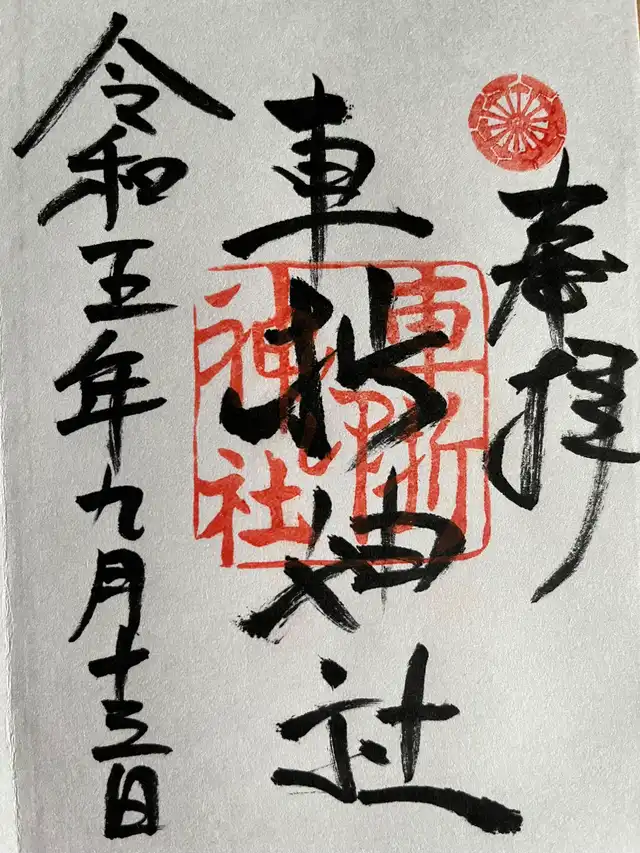 奉拝
車折神社
令和五年九月十三日
車折
神社